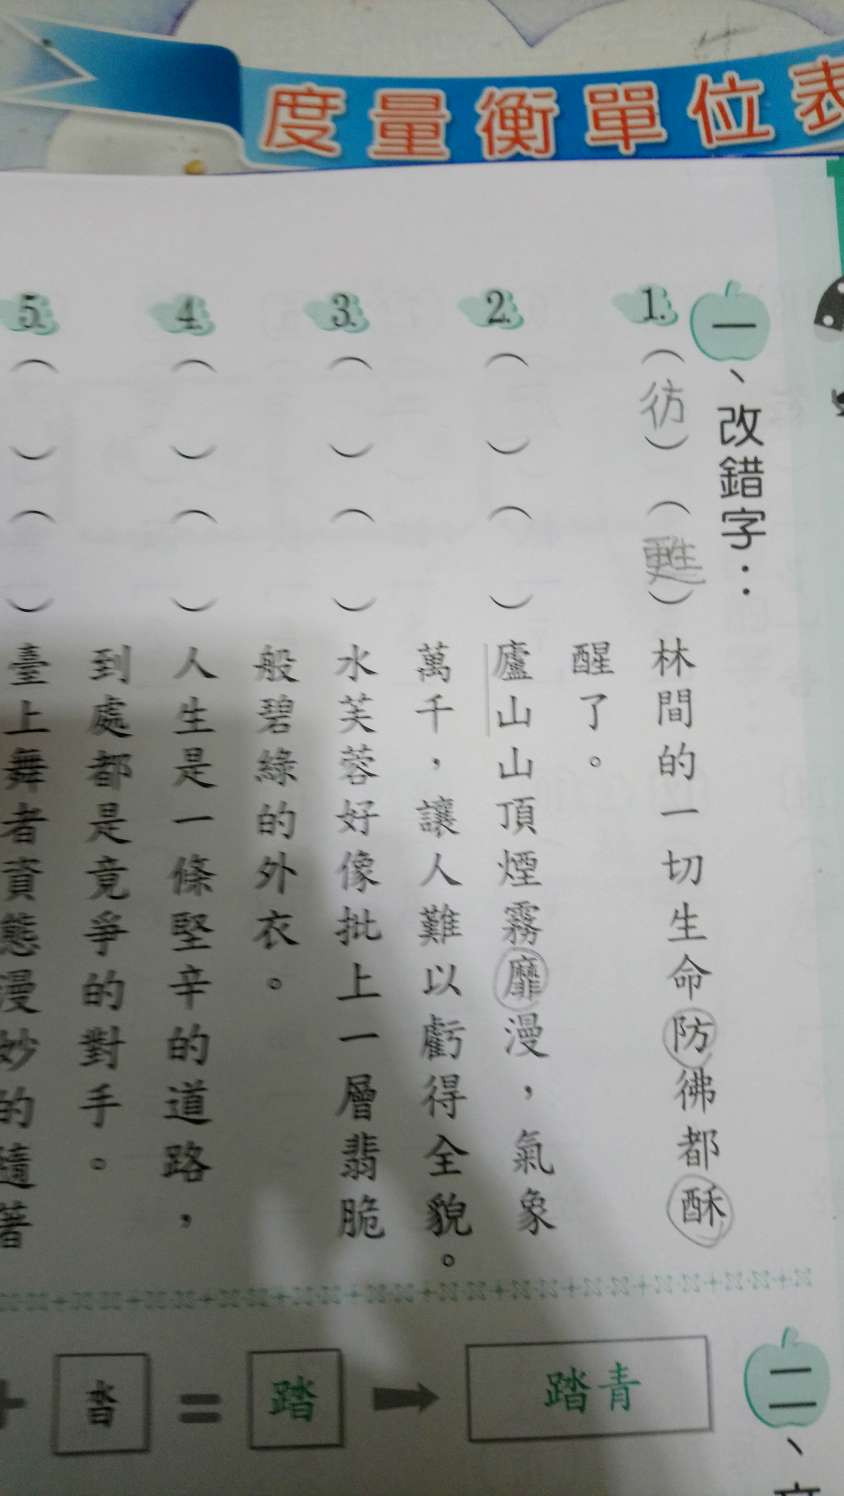 度量衡單位表
一、改錯字：
1.（彷）（甦）林間的一切生命防彿都酥
醒了。
2.（ ）（ ）廬山山頂煙霧靡漫，氣象
萬千，讓人難以虧得全貌。
3.（ ）（ ）水芙蓉好像批上一層翡脆
般碧綠的外衣。
4.（ ）（ ）人生是一條堅辛的道路，
到處都是竟爭的對手。
5.（ ）（ ）臺上舞者資態漫妙的隨著
二、
踏青
➡
踏
=
沓
+